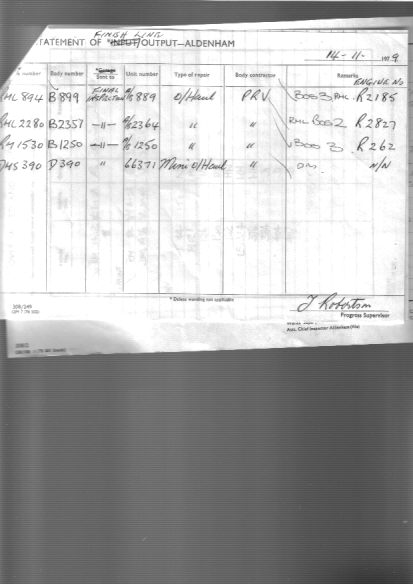 FINISH LINE
STATEMENT OF *INPUT/OUTPUT—ALDENHAM
14-11- 1979
ENGINE No
number Body number Garage Sent to Unit number Type of repair Body contractor Remarks
RML 894 B899 FINAL INSPECTION 889 O/Haul PRV BOS3 RML R2185
RML 2280 B2357 —11— 2364 " " RML BOS2 R2827
RM 1530 B1250 —11— 1250 " " BOS 3 R262
DMS 390 D390 " 66371 Mini O/Haul " DM N/N
* Delete wording not applicable
J Robertson
Progress Supervisor
Asst. Chief Inspector Aldenham (Wks)